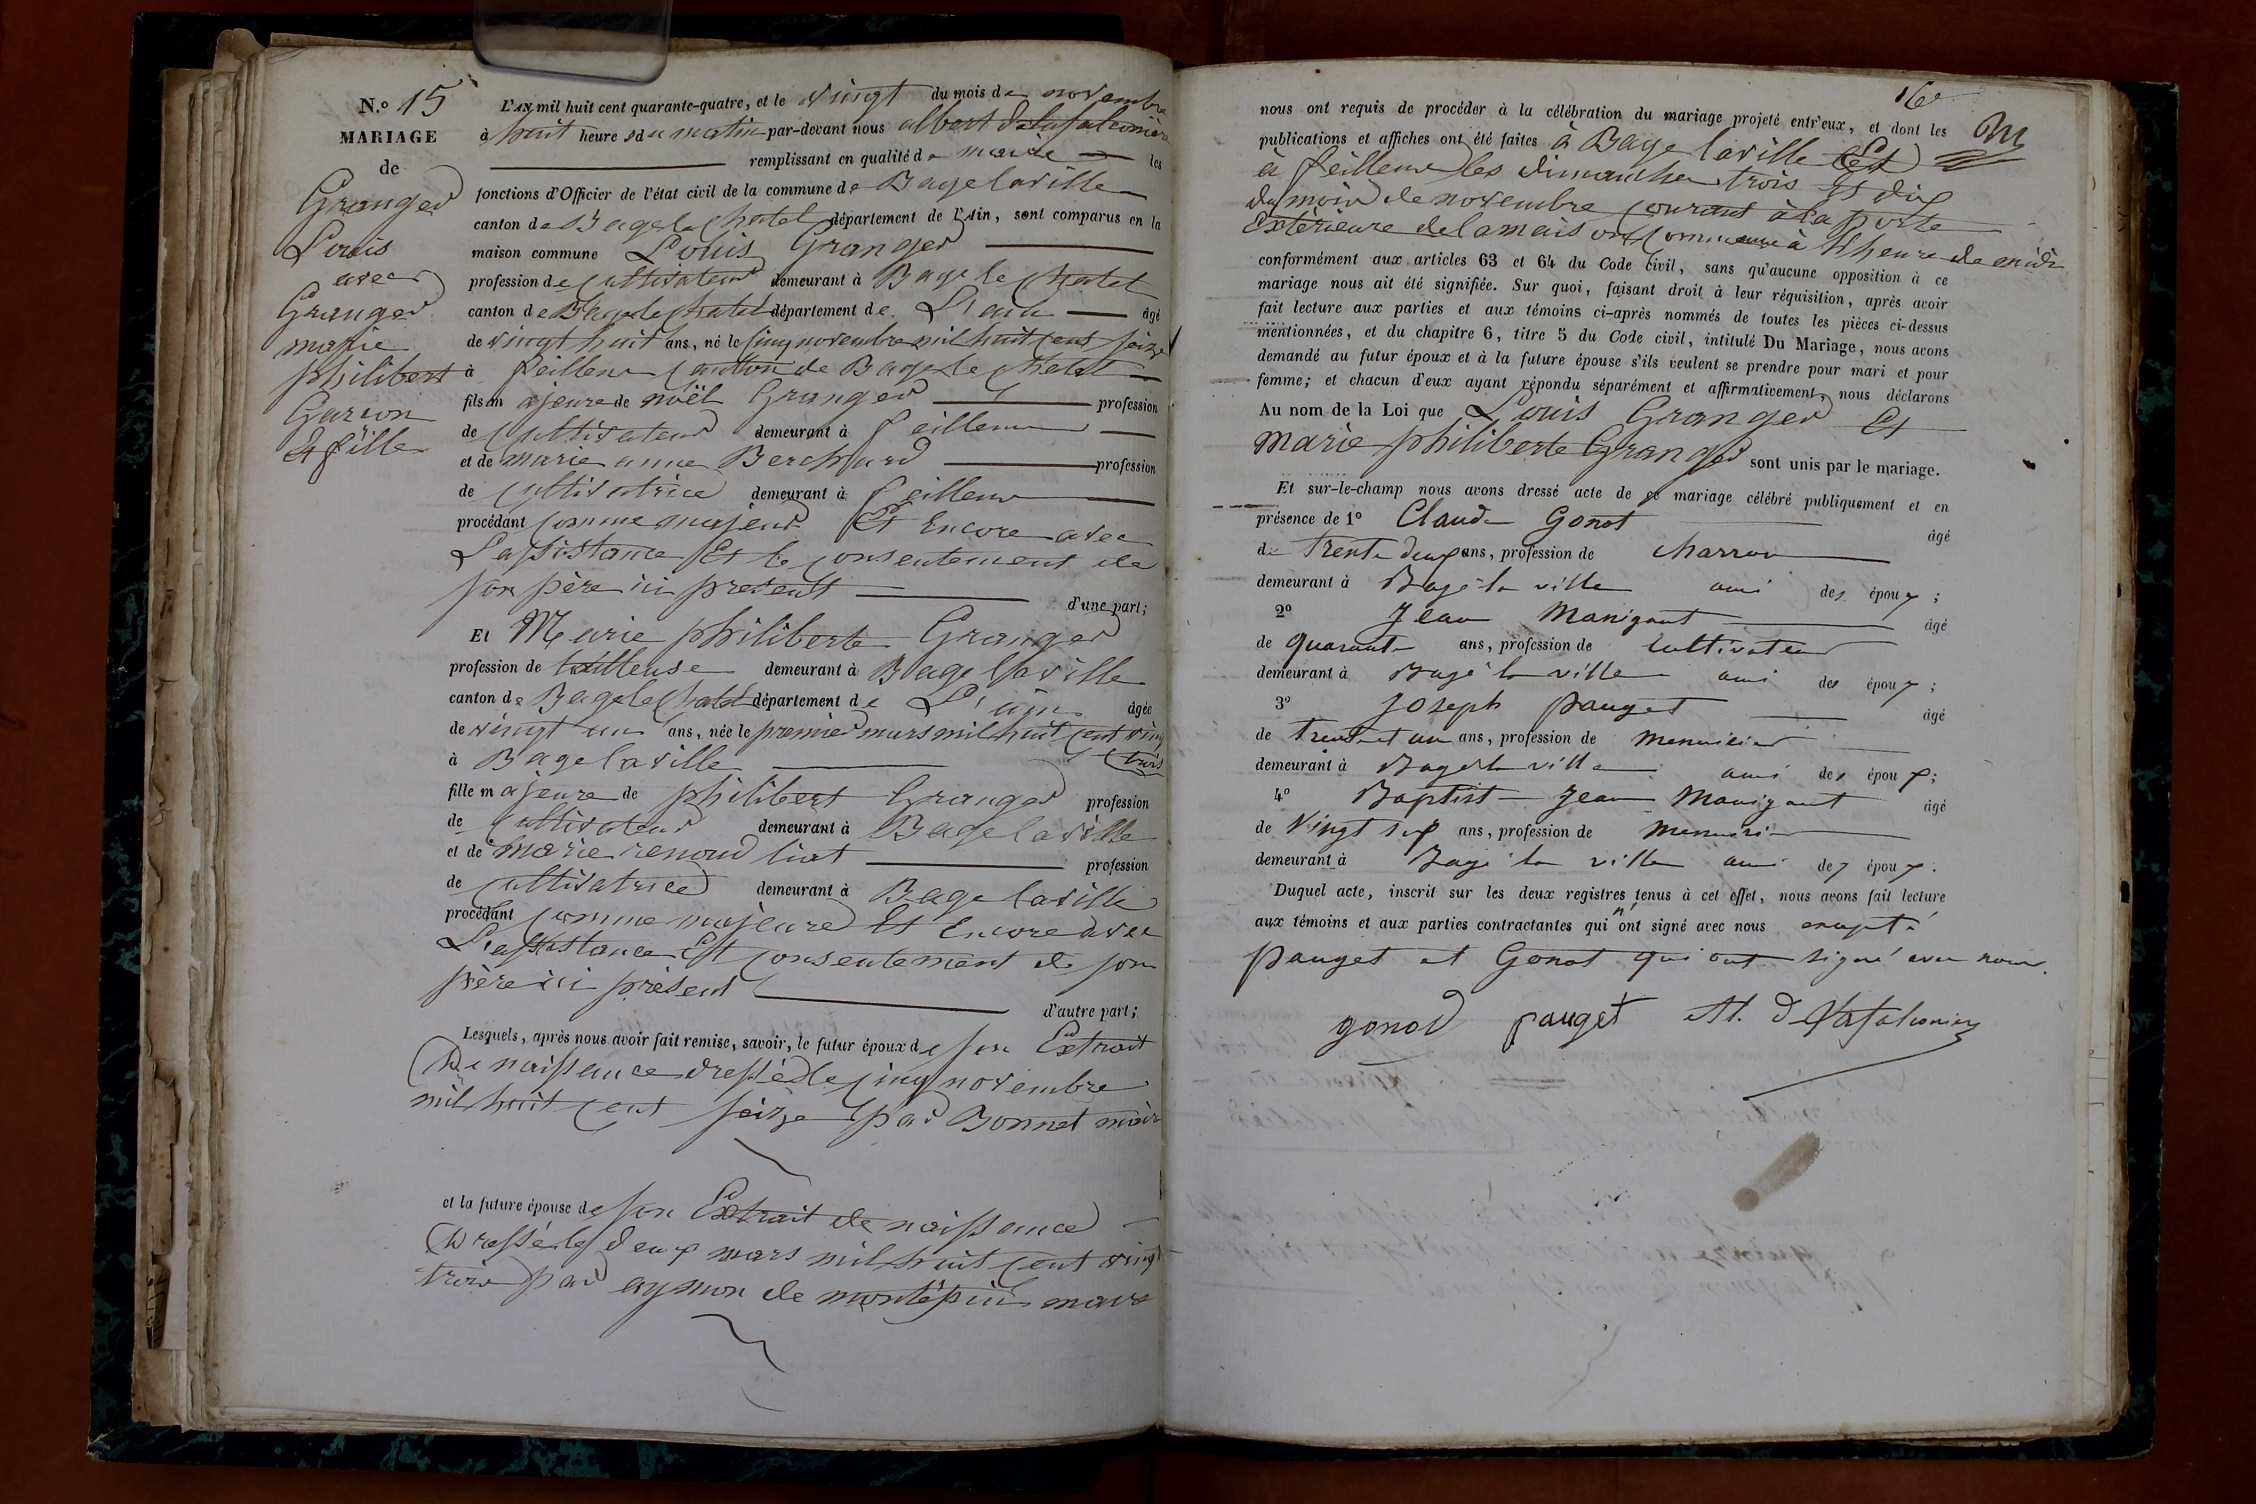 N.º 15
MARIAGE
de
Granger
Louis
avec
Granger
marie
philibert
Garcon
Et fille
L'AN mil huit cent quarante-quatre, et le vingt du mois de novembre
à huit heures du matin par-devant nous albert delafalconière
remplissant en qualité de maire les
fonctions d'Officier de l'état civil de la commune de Bage laville
canton de Bage le chatel département de l'Ain, sont comparus en la
maison commune Louis Granger
profession de cultivateur demeurant à Bage le chatel
canton de Bage le chatel département de L'ain âgé
de vingt huit ans, né le cinq novembre mil huit cent seize
à feillens canton de Bage le chatel
fils majeure de noël Granger profession
de cultivateur demeurant à feillens
et de marie anne Berchard profession
de cultivatrice demeurant à feillens
procédant comme majeur Et Encore avec
L'assistance Et le consentement de
son père ici present d'une part;
Et Marie philiberte Granger
profession de tailleuse demeurant à Bage laville
canton de Bage le chatel département de L'ain âgée
de vingt un ans, née le premier mars mil huit cent vingt
trois
à Bage laville
fille majeure de philibert Granger profession
de cultivateur demeurant à Bage laville
et de marie renoud liat profession
de cultivatrice demeurant à Bage laville
procédant comme majeure Et Encore avec
L'assistance Et consentement de son
père ici présent d'autre part;
Lesquels, après nous avoir fait remise, savoir, le futur époux de son Extrait
De naissance dressé le cinq novembre
mil huit cent seize par Bonnet maire
et la future épouse de son Extrait de naissance
Dressé le deux mars mil huit cent vingt
trois par aymon de montépin maire
16e
nous ont requis de procéder à la célébration du mariage projeté entr'eux, et dont les
publications et affiches ont été faites à Bage laville Et
à feillens les dimanches trois Et dix
du mois de novembre courant à la porte
Extérieure de la maison commune à l'heure de midi
conformément aux articles 63 et 64 du Code civil, sans qu'aucune opposition à ce
mariage nous ait été signifiée. Sur quoi, faisant droit à leur réquisition, après avoir
fait lecture aux parties et aux témoins ci-après nommés de toutes les pièces ci-dessus
mentionnées, et du chapitre 6, titre 5 du Code civil, intitulé Du Mariage, nous avons
demandé au futur époux et à la future épouse s'ils veulent se prendre pour mari et pour
femme; et chacun d'eux ayant répondu séparément et affirmativement, nous déclarons
Au nom de la Loi que Louis Granger Et
marie philiberte Granger sont unis par le mariage.
Et sur-le-champ nous avons dressé acte de ce mariage célébré publiquement et en
présence de 1º Claude Gonot âgé
de Trente deux ans, profession de charron
demeurant à Bagé la ville ami des époux;
2º Jean Manigant âgé
de quarante ans, profession de cultivateur
demeurant à Bagé la ville ami des époux;
3º Joseph Pauget âgé
de Trente et un ans, profession de menuisier
demeurant à Bagé la ville ami des époux;
4º Baptist Jean Manigant âgé
de vingt six ans, profession de menuisier
demeurant à Bagé la ville ami des époux.
Duquel acte, inscrit sur les deux registres tenus à cet effet, nous avons fait lecture
aux témoins et aux parties contractantes qui n'ont signé avec nous excepté
Pauget et Gonot qui ont signé avec nous.
gonod pauget